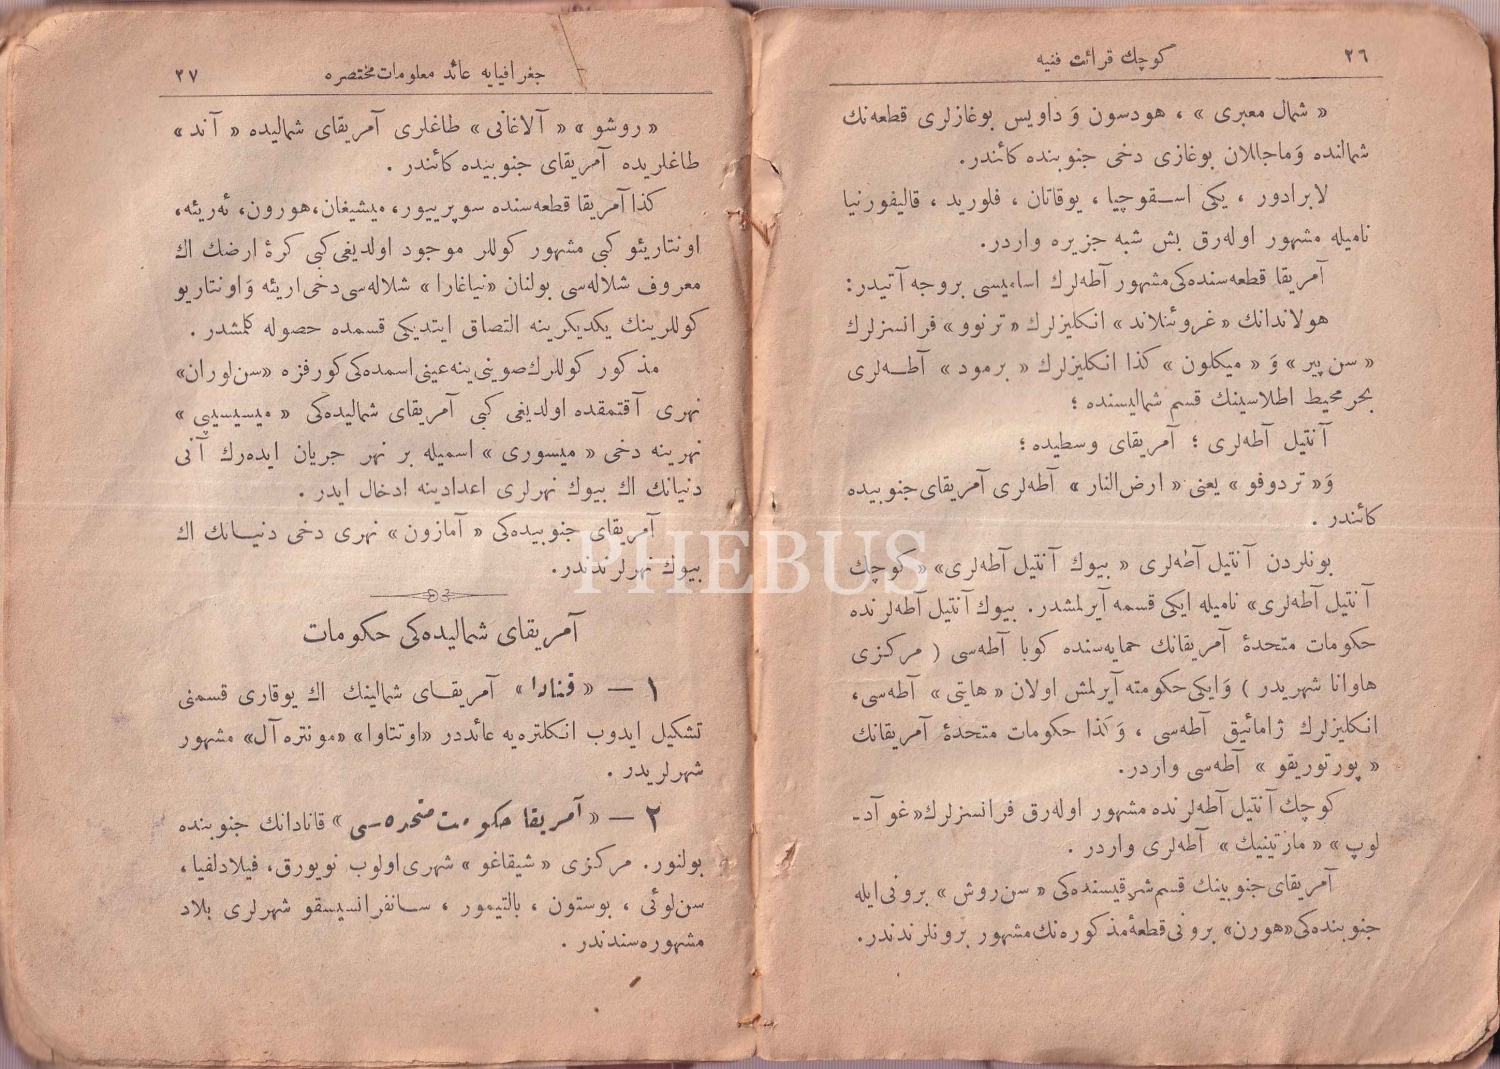 ٢٦
كوچك قرائت فنيه
« شمال معبرى » ، هودسون وَ داويس بوغازلرى قطعه‌نك
شمالنده وَ ماجللان بوغازى دخى جنوبنده كائندر.
لابرادور ، يكى اسقوچيا ، يوقاتان ، فلوريد ، قاليفورنيا
ناميله مشهور اوله‌رق بش شبه جزيره واردر.
آمريقا قطعه‌سنده‌كى مشهور آطه‌لرك اساميسى بروجه آتيدر :
هولاندانك « غروئنلاند » انكليزلرك « ترنوو » فرانسزلرك
« سن پير » وَ « ميكلون » كذا انكليزلرك « برمود » آطه‌لرى
بحر محيط اطلاسينك قسم شماليسنده ؛
آنتيل آطه‌لرى ؛ آمريقاى وسطيده ؛
وَ « تردوفو » يعنى « ارض النار » آطه‌لرى آمريقاى جنوبيده
كائندر .
بونلردن آنتيل آطه‌لرى « بيوك آنتيل آطه‌لرى » « كوچك
آنتيل آطه‌لرى » ناميله ايكى قسمه آيرلمشدر. بيوك آنتيل آطه‌لرنده
حكومات متحدۀ آمريقانك حمايه‌سنده كوبا آطه‌سى ( مركزى
هاوانا شهريدر ) وَ ايكى حكومته آيرلمش اولان « هايتى » آطه‌سى،
انكليزلرك ژامائيق آطه‌سى ، وَ كذا حكومات متحدۀ آمريقانك
« پورتوريقو » آطه‌سى واردر.
كوچك آنتيل آطه‌لرنده مشهور اوله‌رق فرانسزلرك « غو آد-
لوپ » « مارتينيك » آطه‌لرى واردر .
آمريقاى جنوبينك قسم شرقيسنده‌كى « سن روش » برونى ايله
جنوبنده‌كى « هورن » برونى قطعۀ مذكوره‌نك مشهور برونلرندندر.
جغرافيايه عائد معلومات مختصره
٢٧
« روشو » « آلاغانى » طاغلرى آمريقاى شماليده « آند »
طاغلريده آمريقاى جنوبيده كائندر .
كذا آمريقا قطعه‌سنده سوپرييور، ميشيغان، هورون، ئه‌ريئه،
اونتاريئو كبى مشهور كوللر موجود اولديغى كبى كرۀ ارضك اك
معروف شلاله‌سى بولنان « نياغارا » شلاله‌سى دخى اريئه وَ اونتاريو
كوللرينك يكديكرينه التصاق ايتديكى قسمده حصوله كلمشدر .
مذكور كوللرك صوينى ينه عينى اسمده‌كى كورفزه « سن لوران »
نهرى آقتمقده اولديغى كبى آمريقاى شماليده‌كى « ميسيسيپى »
نهرينه دخى « ميسورى » اسميله بر نهر جريان ايده‌رك آنى
دنيانك اك بيوك نهرلرى اعدادينه ادخال ايدر .
آمريقاى جنوبيده‌كى « آمازون » نهرى دخى دنيانك اك
بيوك نهرلرندندر.
آمريقاى شماليده‌كى حكومات
١ — « قنادا » آمريقاى شمالينك اك يوقارى قسمنى
تشكيل ايدوب انكلتره‌يه عائددر « اوتتاوا » « مونتره آل » مشهور
شهرلريدر .
٢ — « آمريقا حكومت متحده‌سى » قانادانك جنوبنده
بولنور. مركزى « شيقاغو » شهرى اولوب نويورق، فيلادلفيا ،
سن لوئى ، بوستون ، بالتيمور ، سانفرانسيسقو شهرلرى بلاد
مشهوره‌سندندر .
PHEBUS